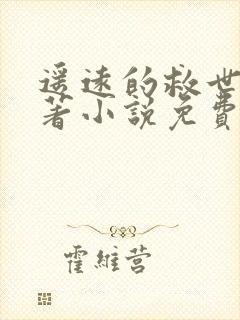 遥远的救世
著小说免费
霍维营